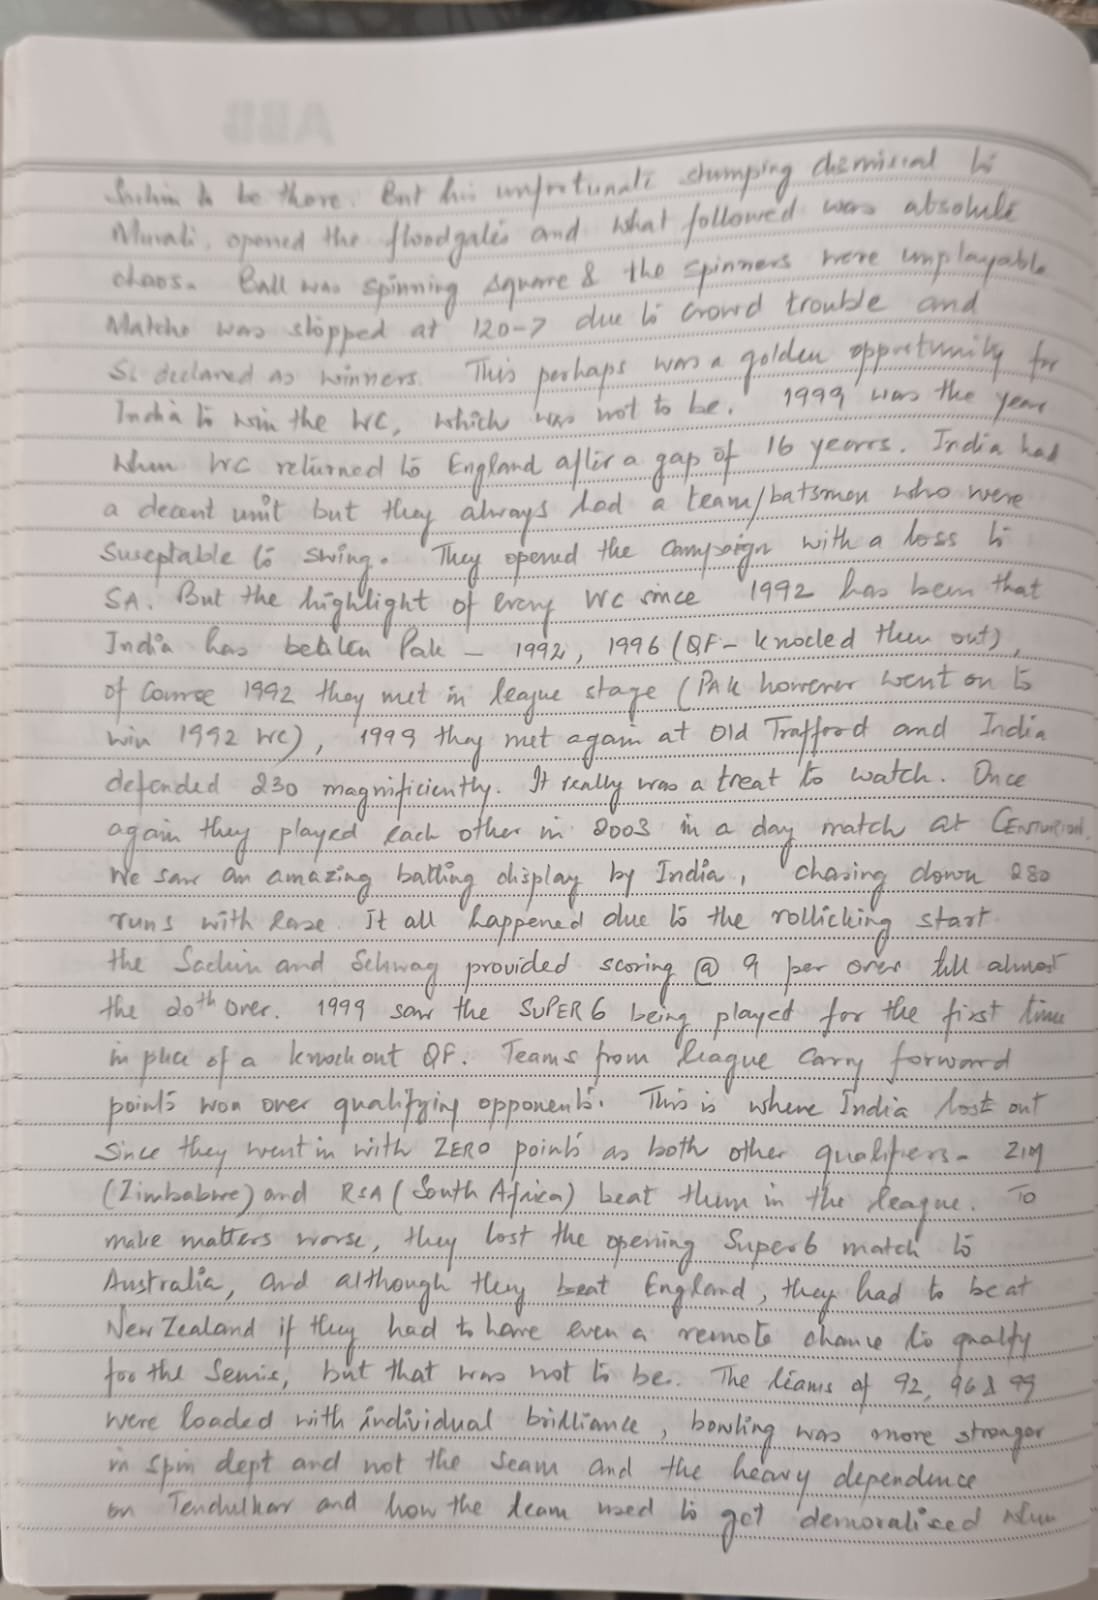 Sachin to be there. But his unfortunate stumping dismissal to
Murali, opened the floodgates and what followed was absolute
chaos. Ball was spinning square & the spinners were unplayable
Matche was stopped at 120-7 due to crowd trouble and
SL declared as winners. This perhaps was a golden opportunity for
India to win the WC, which was not to be. 1999 was the year
when WC returned to England after a gap of 16 years. India had
a decent unit but they always had a team/batsmen who were
Suseptable to swing. They opened the campaign with a loss to
SA. But the highlight of every WC since 1992 has been that
India has beaten Pak - 1992, 1996 (QF - knocled them out),
of Course 1992 they met in league stage (PAK however went on to
win 1992 WC), 1999 they met again at Old Trafford and India
defended 230 magnificiently. It really was a treat to watch. Once
again they played each other in 2003 in a day match at CENTURION.
We saw an amazing batting display by India, chasing down 280
runs with ease. It all happened due to the rollicking start
the Sachin and Sehwag provided scoring @ 9 per over till almost
the 20th over. 1999 saw the SUPER 6 being played for the first time
in place of a knock out QF. Teams from league carry forward
points won over qualifying opponents. This is where India lost out
since they went in with ZERO points as both other qualifiers - ZIM
(Zimbabwe) and RSA (South Africa) beat them in the league. To
make matters worse, they lost the opening Super 6 match to
Australia, and although they beat England, they had to beat
New Zealand if they had to have even a remote chance to qualfy
for the Semis, but that was not to be. The teams of 92, 96 & 99
were loaded with individual brilliance, bowling was more stronger
in spin dept and not the seam and the heavy dependence
on Tendulkar and how the team used to get demoralised when